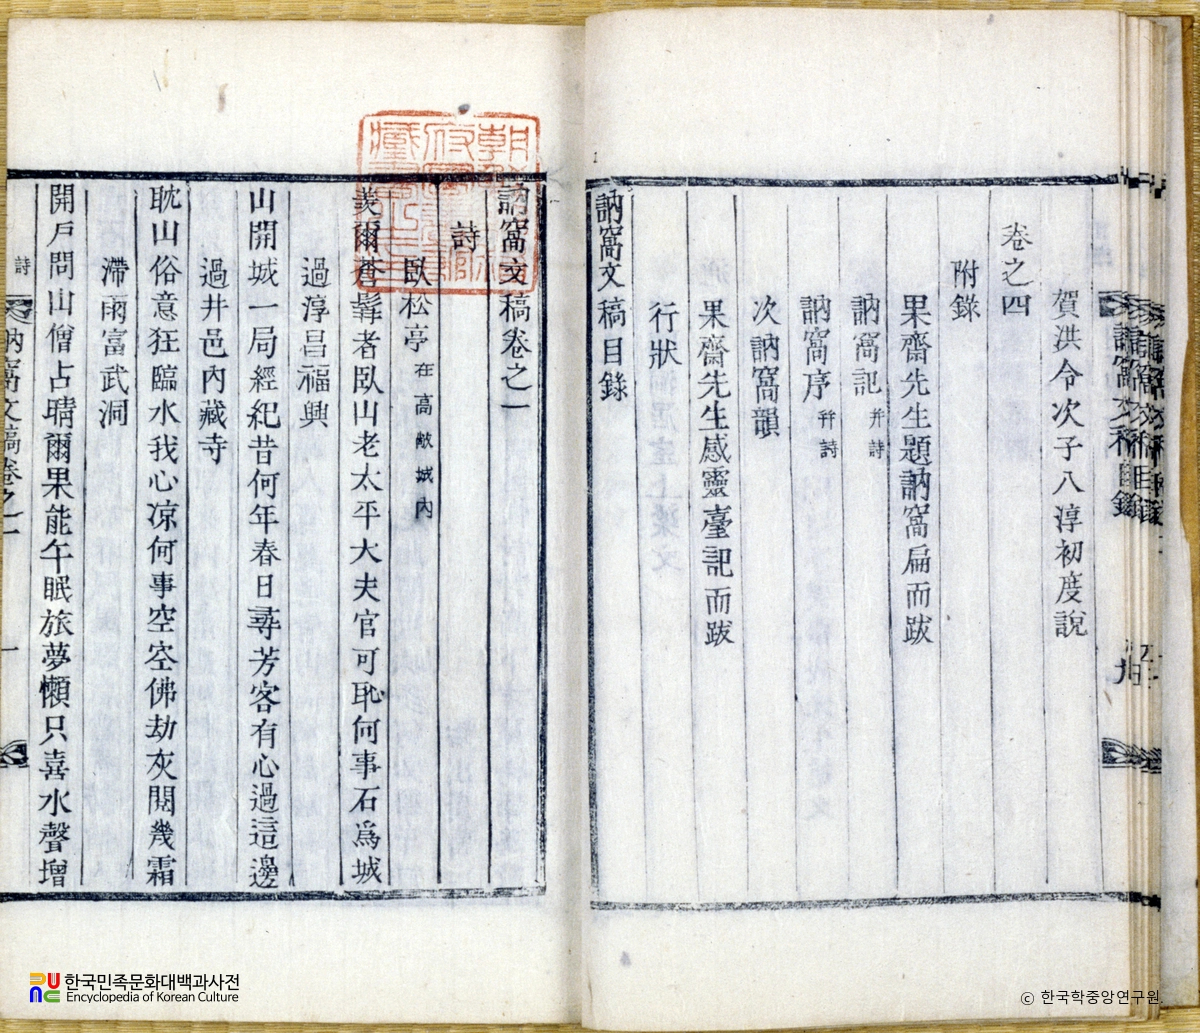 賀洪令次子八淳初度說
卷之四
附錄
果齋先生題訥窩扁而跋
訥窩記 并詩
訥窩序 并詩
次訥窩韻
果齋先生感靈臺記而跋
行狀
訥窩文稿目錄
訥窩文稿卷之一
詩
臥松亭 在高敞城內
羨爾蒼髥者臥山老太平大夫官可恥何事石爲城
過淳昌福興
山開城一局經紀昔何年春日尋芳客有心過這邊
過井邑內藏寺
耽山俗意狂臨水我心凉何事空空佛劫灰閱幾霜
滯雨富武洞
開戶問山僧占晴爾果能午眠旅夢懶只喜水聲增
詩
訥窩文稿卷之一
一
한국민족문화대백과사전
Encyclopedia of Korean Culture
ⓒ 한국학중앙연구원